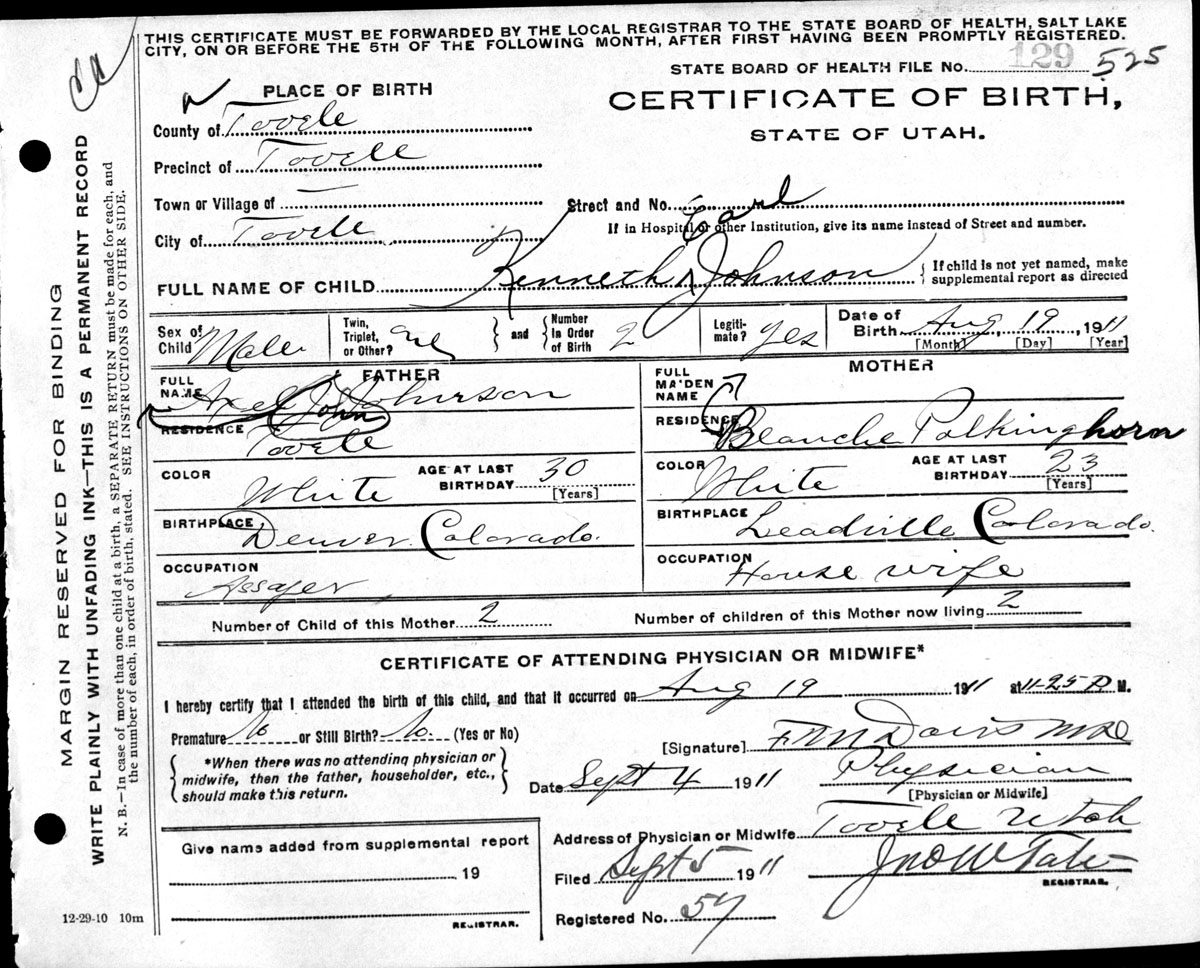 THIS CERTIFICATE MUST BE FORWARDED BY THE LOCAL REGISTRAR TO THE STATE BOARD OF HEALTH, SALT LAKE
CITY, ON OR BEFORE THE 5TH OF THE FOLLOWING MONTH, AFTER FIRST HAVING BEEN PROMPTLY REGISTERED.
STATE BOARD OF HEALTH FILE No. 129 525
PLACE OF BIRTH
CERTIFICATE OF BIRTH,
STATE OF UTAH.
County of Tooele
Precinct of Tooele
Town or Village of —
Street and No.
City of Tooele
If in Hospital or other Institution, give its name instead of Street and number.
Earl
FULL NAME OF CHILD Kenneth Johnson
{ If child is not yet named, make
supplemental report as directed
Sex of Child Male
Twin, Triplet, or Other?
and
Number in Order of Birth 2
Legitimate? Yes
Date of Birth Aug 19, 1911
[Month] [Day] [Year]
FATHER
FULL NAME Axel John Johnson
RESIDENCE Tooele
COLOR White
AGE AT LAST BIRTHDAY 30
[Years]
BIRTHPLACE Denver. Colorado.
OCCUPATION Assayer
MOTHER
FULL MAIDEN NAME
RESIDENCE Blanche Polkinghorn
COLOR White
AGE AT LAST BIRTHDAY 23
[Years]
BIRTHPLACE Leadville Colorado.
OCCUPATION House wife
Number of Child of this Mother 2
Number of children of this Mother now living 2
CERTIFICATE OF ATTENDING PHYSICIAN OR MIDWIFE*
I hereby certify that I attended the birth of this child, and that it occurred on Aug 19 1911 at 11-25 P. M.
Premature No or Still Birth? No. (Yes or No)
*When there was no attending physician or
midwife, then the father, householder, etc.,
should make this return.
[Signature] Davis MD
Date Sept 4 1911
Physician
[Physician or Midwife]
Address of Physician or Midwife Tooele Utah
Filed Sept 5 1911
Jno W Tate
REGISTRAR.
Registered No. 57
Give name added from supplemental report
19
REGISTRAR.
12-29-10 10m
MARGIN RESERVED FOR BINDING
WRITE PLAINLY WITH UNFADING INK—THIS IS A PERMANENT RECORD
N. B.—In case of more than one child at a birth, a SEPARATE RETURN must be made for each, and
the number of each, in order of birth, stated. SEE INSTRUCTIONS ON OTHER SIDE.